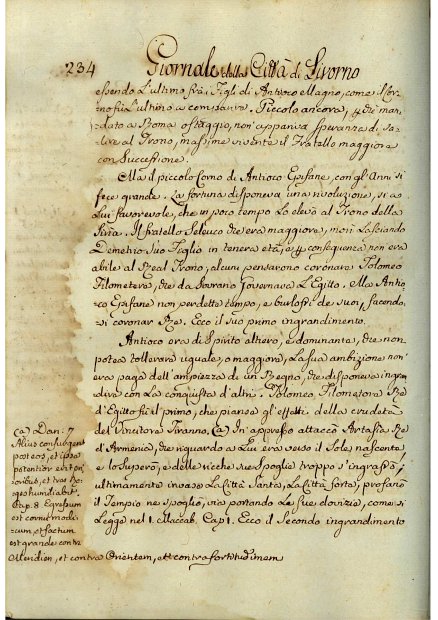 234 Giornale della Città di Livorno
essendo l'ultimo frà i Figli di Antioco Magno, come il Cor-
no fù l'ultimo a comparire. Piccolo ancora, e man-
dato a Roma ostaggio, non appariva speranza di sa-
lire al Trono, massime vivente il Fratello maggiore
con Successione.
Ma il piccolo Corno di Antioco Epifane, con gl'Anni si
fece grande. La fortuna disponeva una rivoluzione, si a
Lui favorevole, che in poco tempo lo elevò al Trono della
Siria. Il fratello Seleuco che era maggiore, morì lasciando
Demetrio suo Figlio in tenera età, e conseguenza non era
abile al Real Trono, alcuni pensarono coronare Tolomeo
Filometera, che da Sovrano governava l'Egitto. Ma Antio-
co Epifane non perdette tempo, e burlossi de suoi, facendo-
si coronar Rè. Ecco il suo primo ingrandimento.
Antioco era di spirito altiero, e dominante, che non
potea tollerare uguale, o maggiore, la sua ambizione non
era paga dell'ampiezza di un Regno, che disponeva ingran-
dirla con la conquista d'altri. Tolomeo Filometora Rè
d'Egitto fù il primo, che pianse gl'effetti della crudeltà
del Vincitore Tiranno. (a) In appresso attaccò Artasia Rè
d'Armenia, che riguardo a Lui era verso il Sole nascente
e lo superò, e delle ricche sue spoglie troppo s'ingrassò,
ultimamente invase la Città Santa, la Città forte, profanò
il Tempio ne spogliò, via portando le sue dovizie, come si
Legge nel 1. Maccab. Cap 1. Ecco il Secondo ingrandimento
(a) Dan: 7
Alius consurget
post eos, et ipse
potentior erit pri-
oribus, et tres Re-
ges humiliabit.
Cap. 8 Egressum
est cornu modi-
cum, et factum
est grande contra
Meridiem, et contra Orientem, et contra fortitudinem